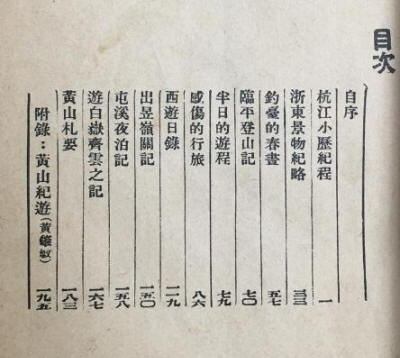 目次
自序
杭江小歷紀程 一
浙東景物紀略 三三
釣臺的春晝 五七
臨平登山記 七〇
半日的遊程 七九
感傷的行旅 八六
西遊日錄 一一九
出昱嶺關記 一五〇
屯溪夜泊記 一五八
遊白嶽齊雲之記 一六七
黃山札要 一八三
附錄：黃山紀遊（黃肇敏） 一九五